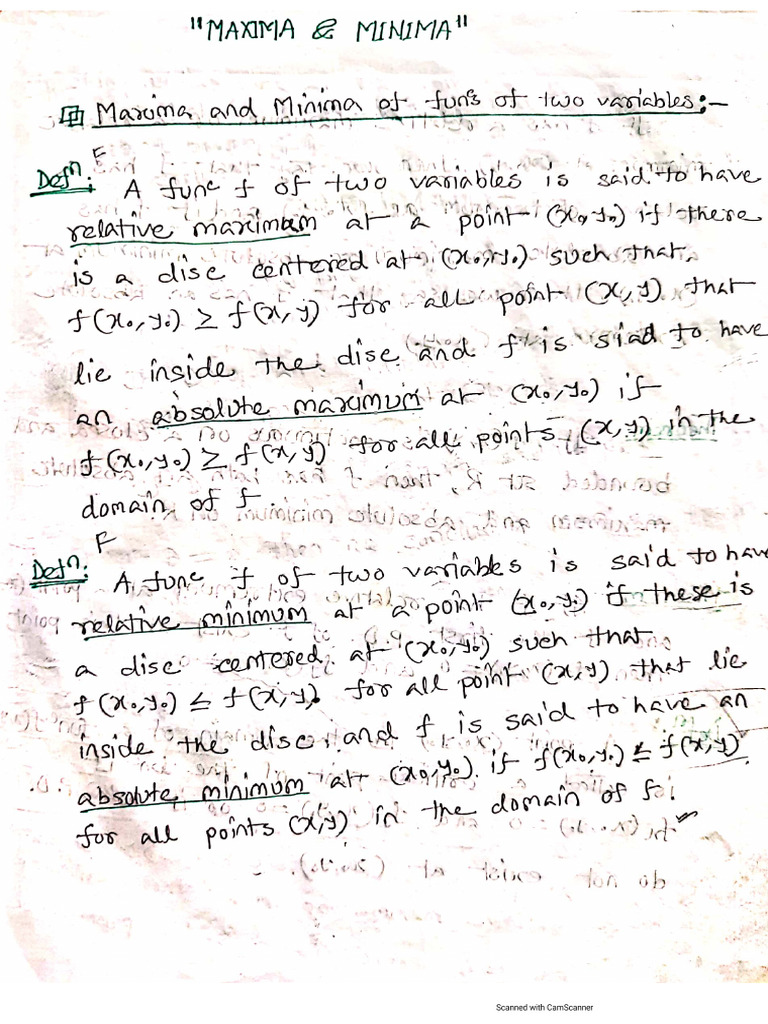 "MAXIMA & MINIMA"
Maxima and Minima of funcs of two variables:-
F
Defn: A func f of two variables is said to have
relative maximum at a point (x0,y0) if there
is a disc centered at (x0,y0) such that
f(x0,y0) ≥ f(x,y) for all point (x,y) that
lie inside the disc and f is siad to have
an absolute maximum at (x0,y0) if
f(x0,y0) ≥ f(x,y) for all points (x,y) in the
domain of f.
F
Defn: A func f of two variables is said to have
relative minimum at a point (x0,y0) if these is
a disc centered at (x0,y0) such that
f(x0,y0) ≤ f(x,y) for all point (x,y) that lie
inside the disc and f is said to have an
absolute minimum at (x0,y0) if f(x0,y0) ≤ f(x,y)
for all points (x,y) in the domain of f.
Scanned with CamScanner